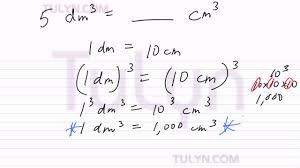 TULYN.COM
5 dm³ = ____ cm³
1 dm = 10 cm
(1 dm)³ = (10 cm)³
10³
10x10x10
1,000
1³ dm³ = 10³ cm³
* 1 dm³ = 1,000 cm³ *
Tulyn
TULYN.COM